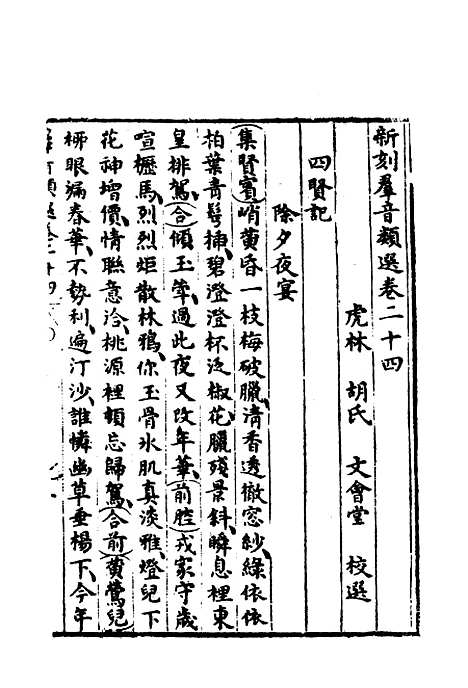 新刻羣音類選卷二十四
虎林　胡氏　文會堂　校選
四賢記
除夕夜宴
集賢賓峭黄昏一枝梅破臘清香透徹窓紗緑依依
柏葉青髩挿碧澄澄杯泛椒花臘殘景斜瞬息裡東
皇排駕合傾玉斝過此夜又改年華前腔戎家守歲
喧櫪馬烈烈炬散林鴉你玉骨氷肌真淡雅燈兒下
花神增價情聯意洽桃源裡頓忘歸駕合前黄鶯兒
栁眼漏春華不勢利遍汀沙誰憐幽草垂楊下今年